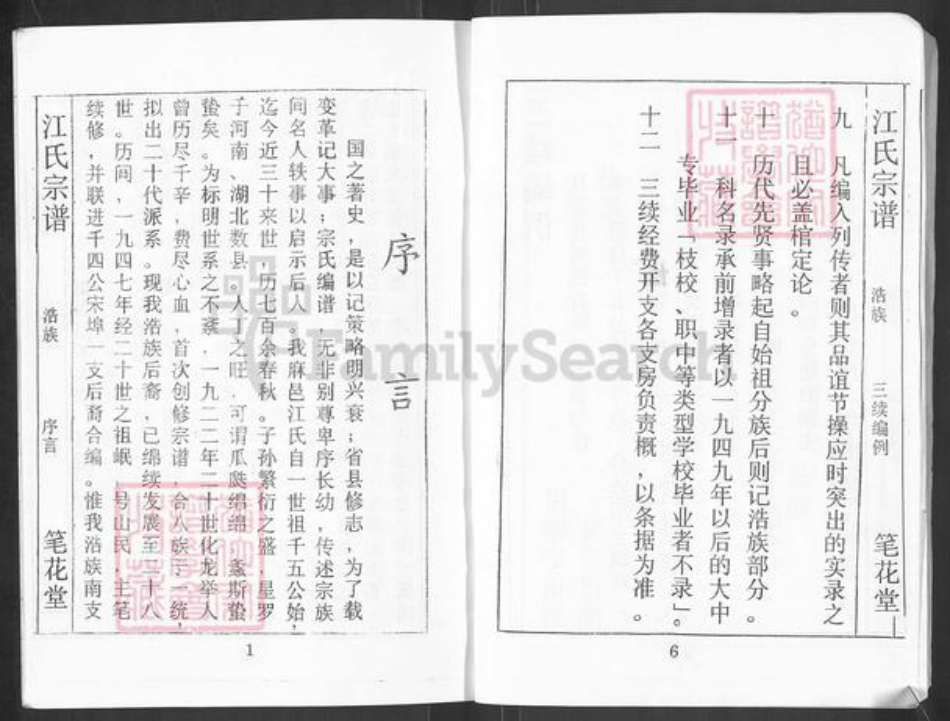 江氏宗谱 浩族 三续编例 笔花堂
九 凡编入列传者则其品谊节操应时突出的实录之
且必盖棺定论。
十 历代先贤事略起自始祖分族后则记浩族部分。
十一 科名录承前增录者以一九四九年以后的大中
专毕业「枝校、职中等类型学校毕业者不录」。
十二 三续经费开支各支房负责概,以条据为准。
6
序言
国之著史,是以记策略明兴衰;省县修志,为了载
变革记大事;宗氏编谱,无非别尊卑序长幼,传述宗族
间名人轶事以启示后人。我麻邑江氏自一世祖千五公始,
迄今近三十来世,历七百余春秋。子孙繁衍之盛,星罗
于河南、湖北数县,人丁之旺,可谓瓜瓞绵绵,螽斯蛰
蛰矣。为标明世系之不紊,一九二二年二十世化龙举人
曾历尽千辛,费尽心血,首次创修宗谱,合八族于一统,
拟出二十代派系。现我浩族后裔,已绵续发展至二十八
世。历间,一九四七年经二十世之祖岷,号山民,主笔
续修,并联进千四公宋埠一支后裔合编。惟我浩族南支
江氏宗谱 浩族 序言 笔花堂
1
FamilySearch